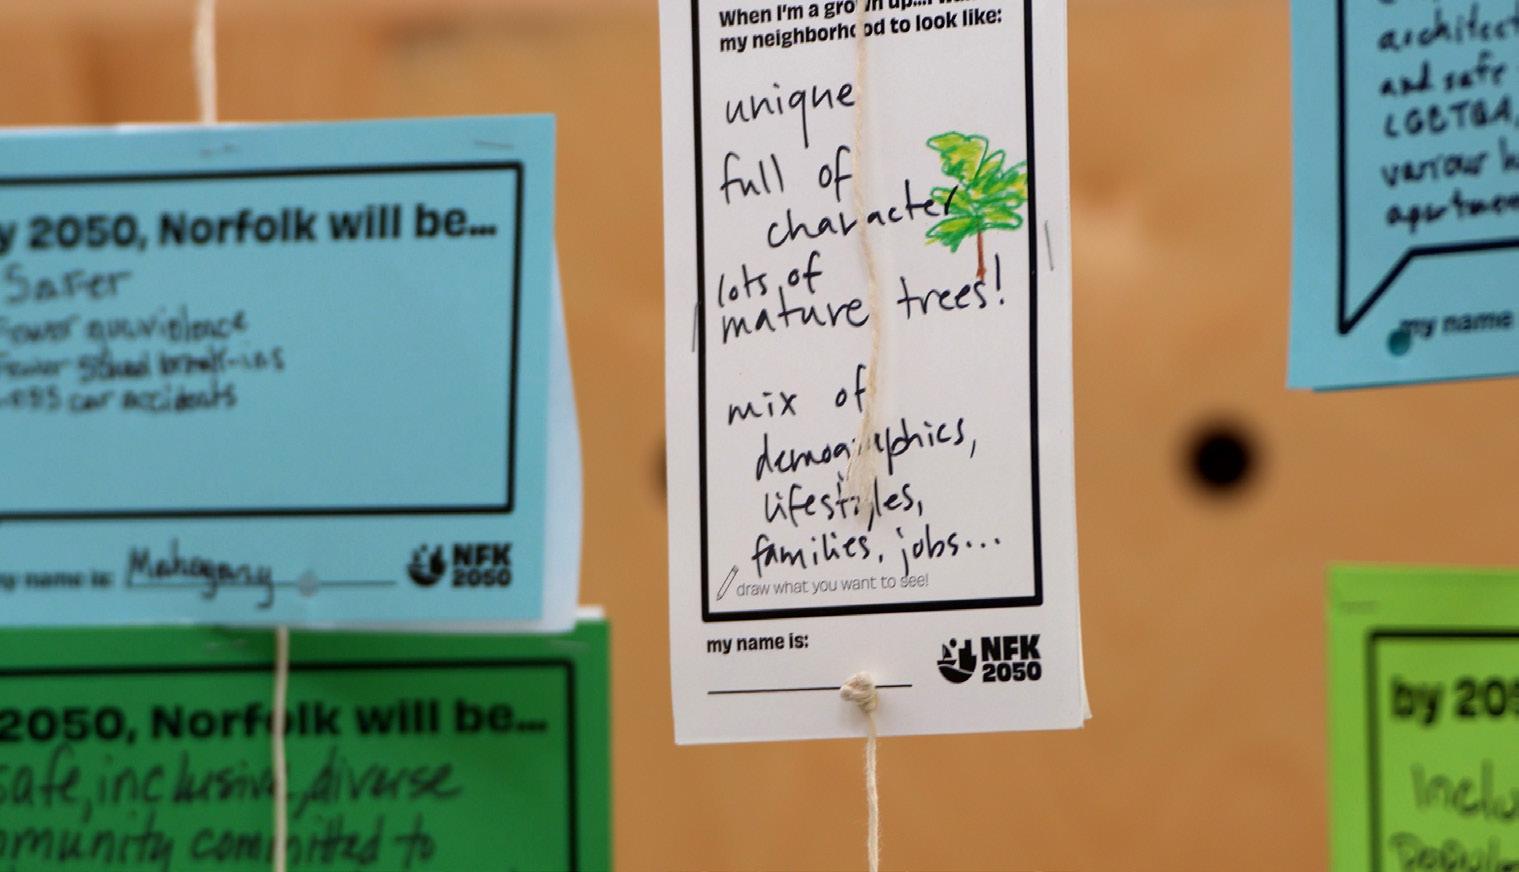 When I'm a grown up....I
my neighborhood to look like:
unique
full of
character
lots of
mature trees!
mix of
demographics,
lifestyles,
families, jobs...
draw what you want to see!
my name is:
NFK
2050
y 2050, Norfolk will be...
Safer
Fewer gun violence
Fewer School break-ins
Less car accidents
my name is: Mahogany
NFK
2050
2050, Norfolk will be...
safe, inclusive, diverse
mmunity committed to
architect
and safe
LGBTQA,
various h
apartmen
my name
by 205
Inclu
Popul